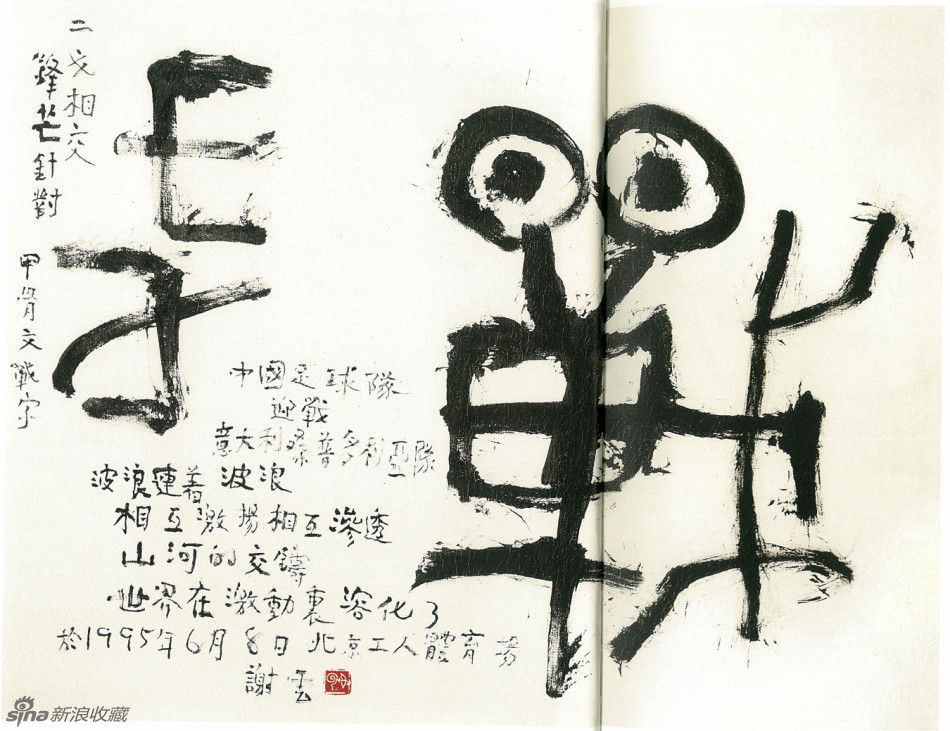 戰
二戈相交
鋒芒針對
甲骨文戰字
中國足球隊
迎戰
意大利桑普多利亞隊
波浪連着波浪
相互激揚相互滲透
山河的交鑄
世界在激動裏溶化了
於1995年6月8日北京工人體育場
謝雲
sina新浪收藏